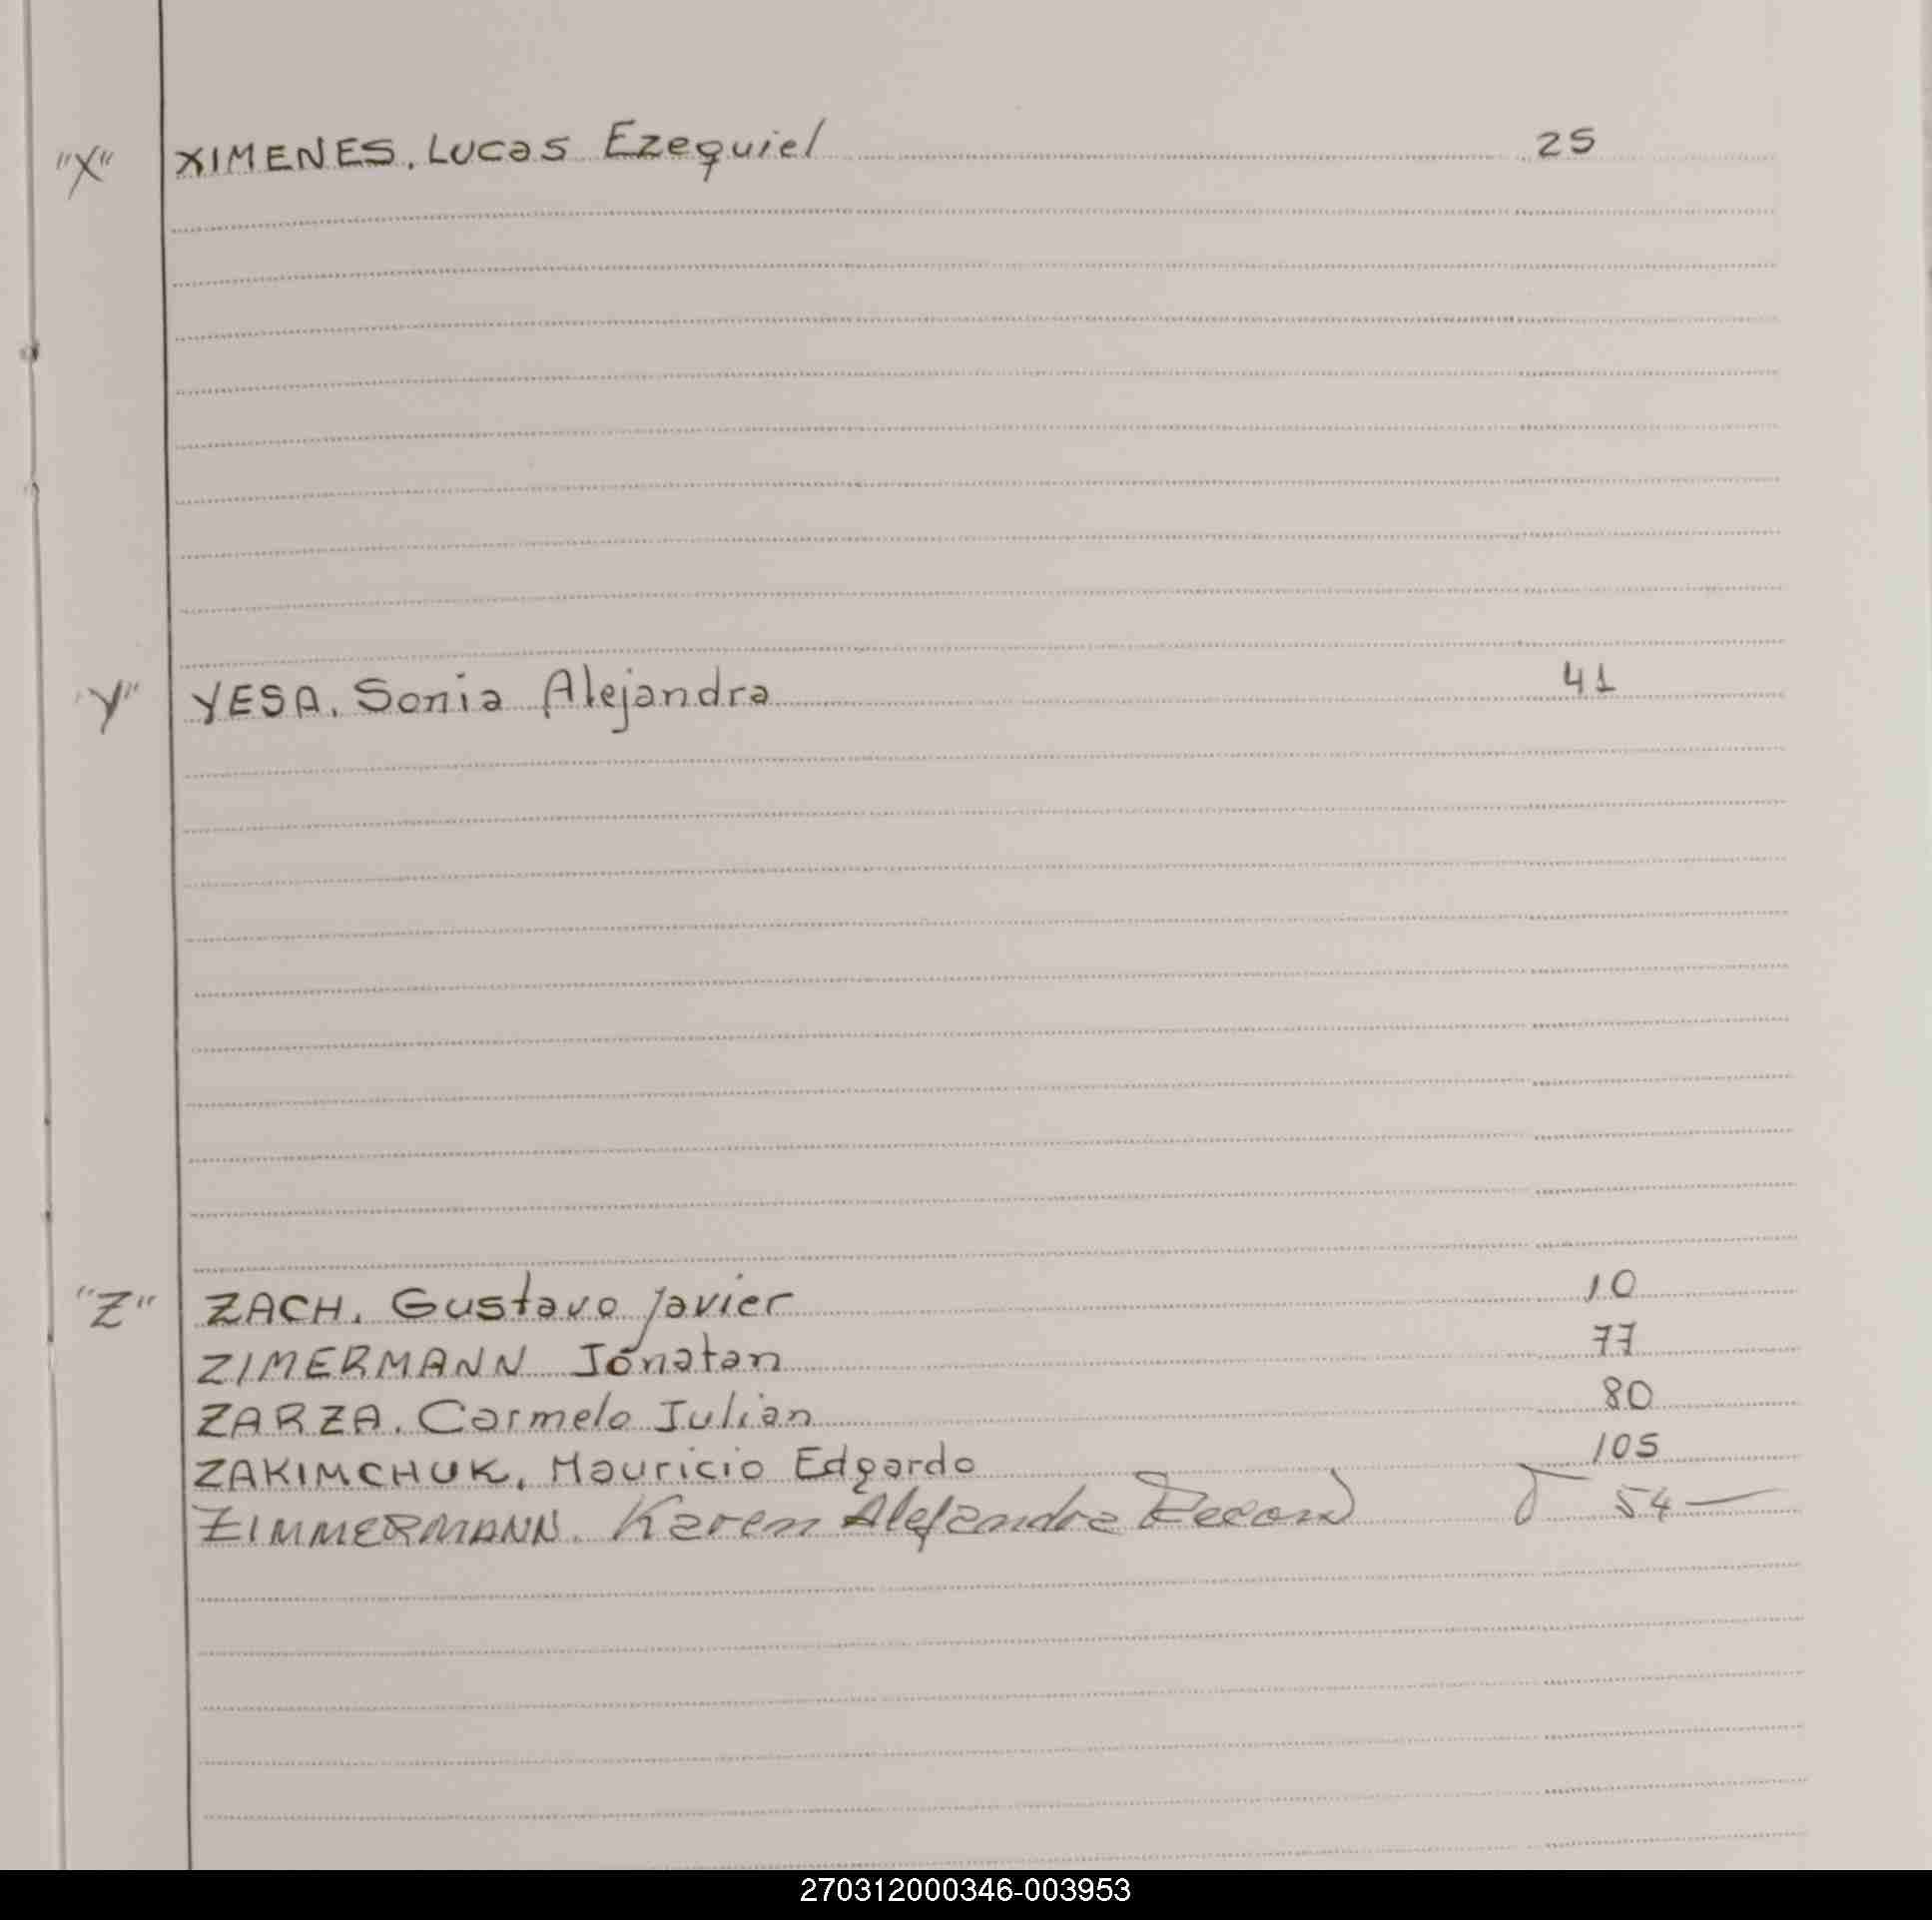 "X" XIMENES, Lucas Ezequiel 25
"Y" YESA, Sonia Alejandra 41
"Z" ZACH, Gustavo Javier 10
ZIMERMANN Jonatan 77
ZARZA, Carmelo Julian 80
ZAKIMCHUK, Mauricio Edgardo 105
ZIMMERMANN, Karem Alejandra 54
270312000346-003953